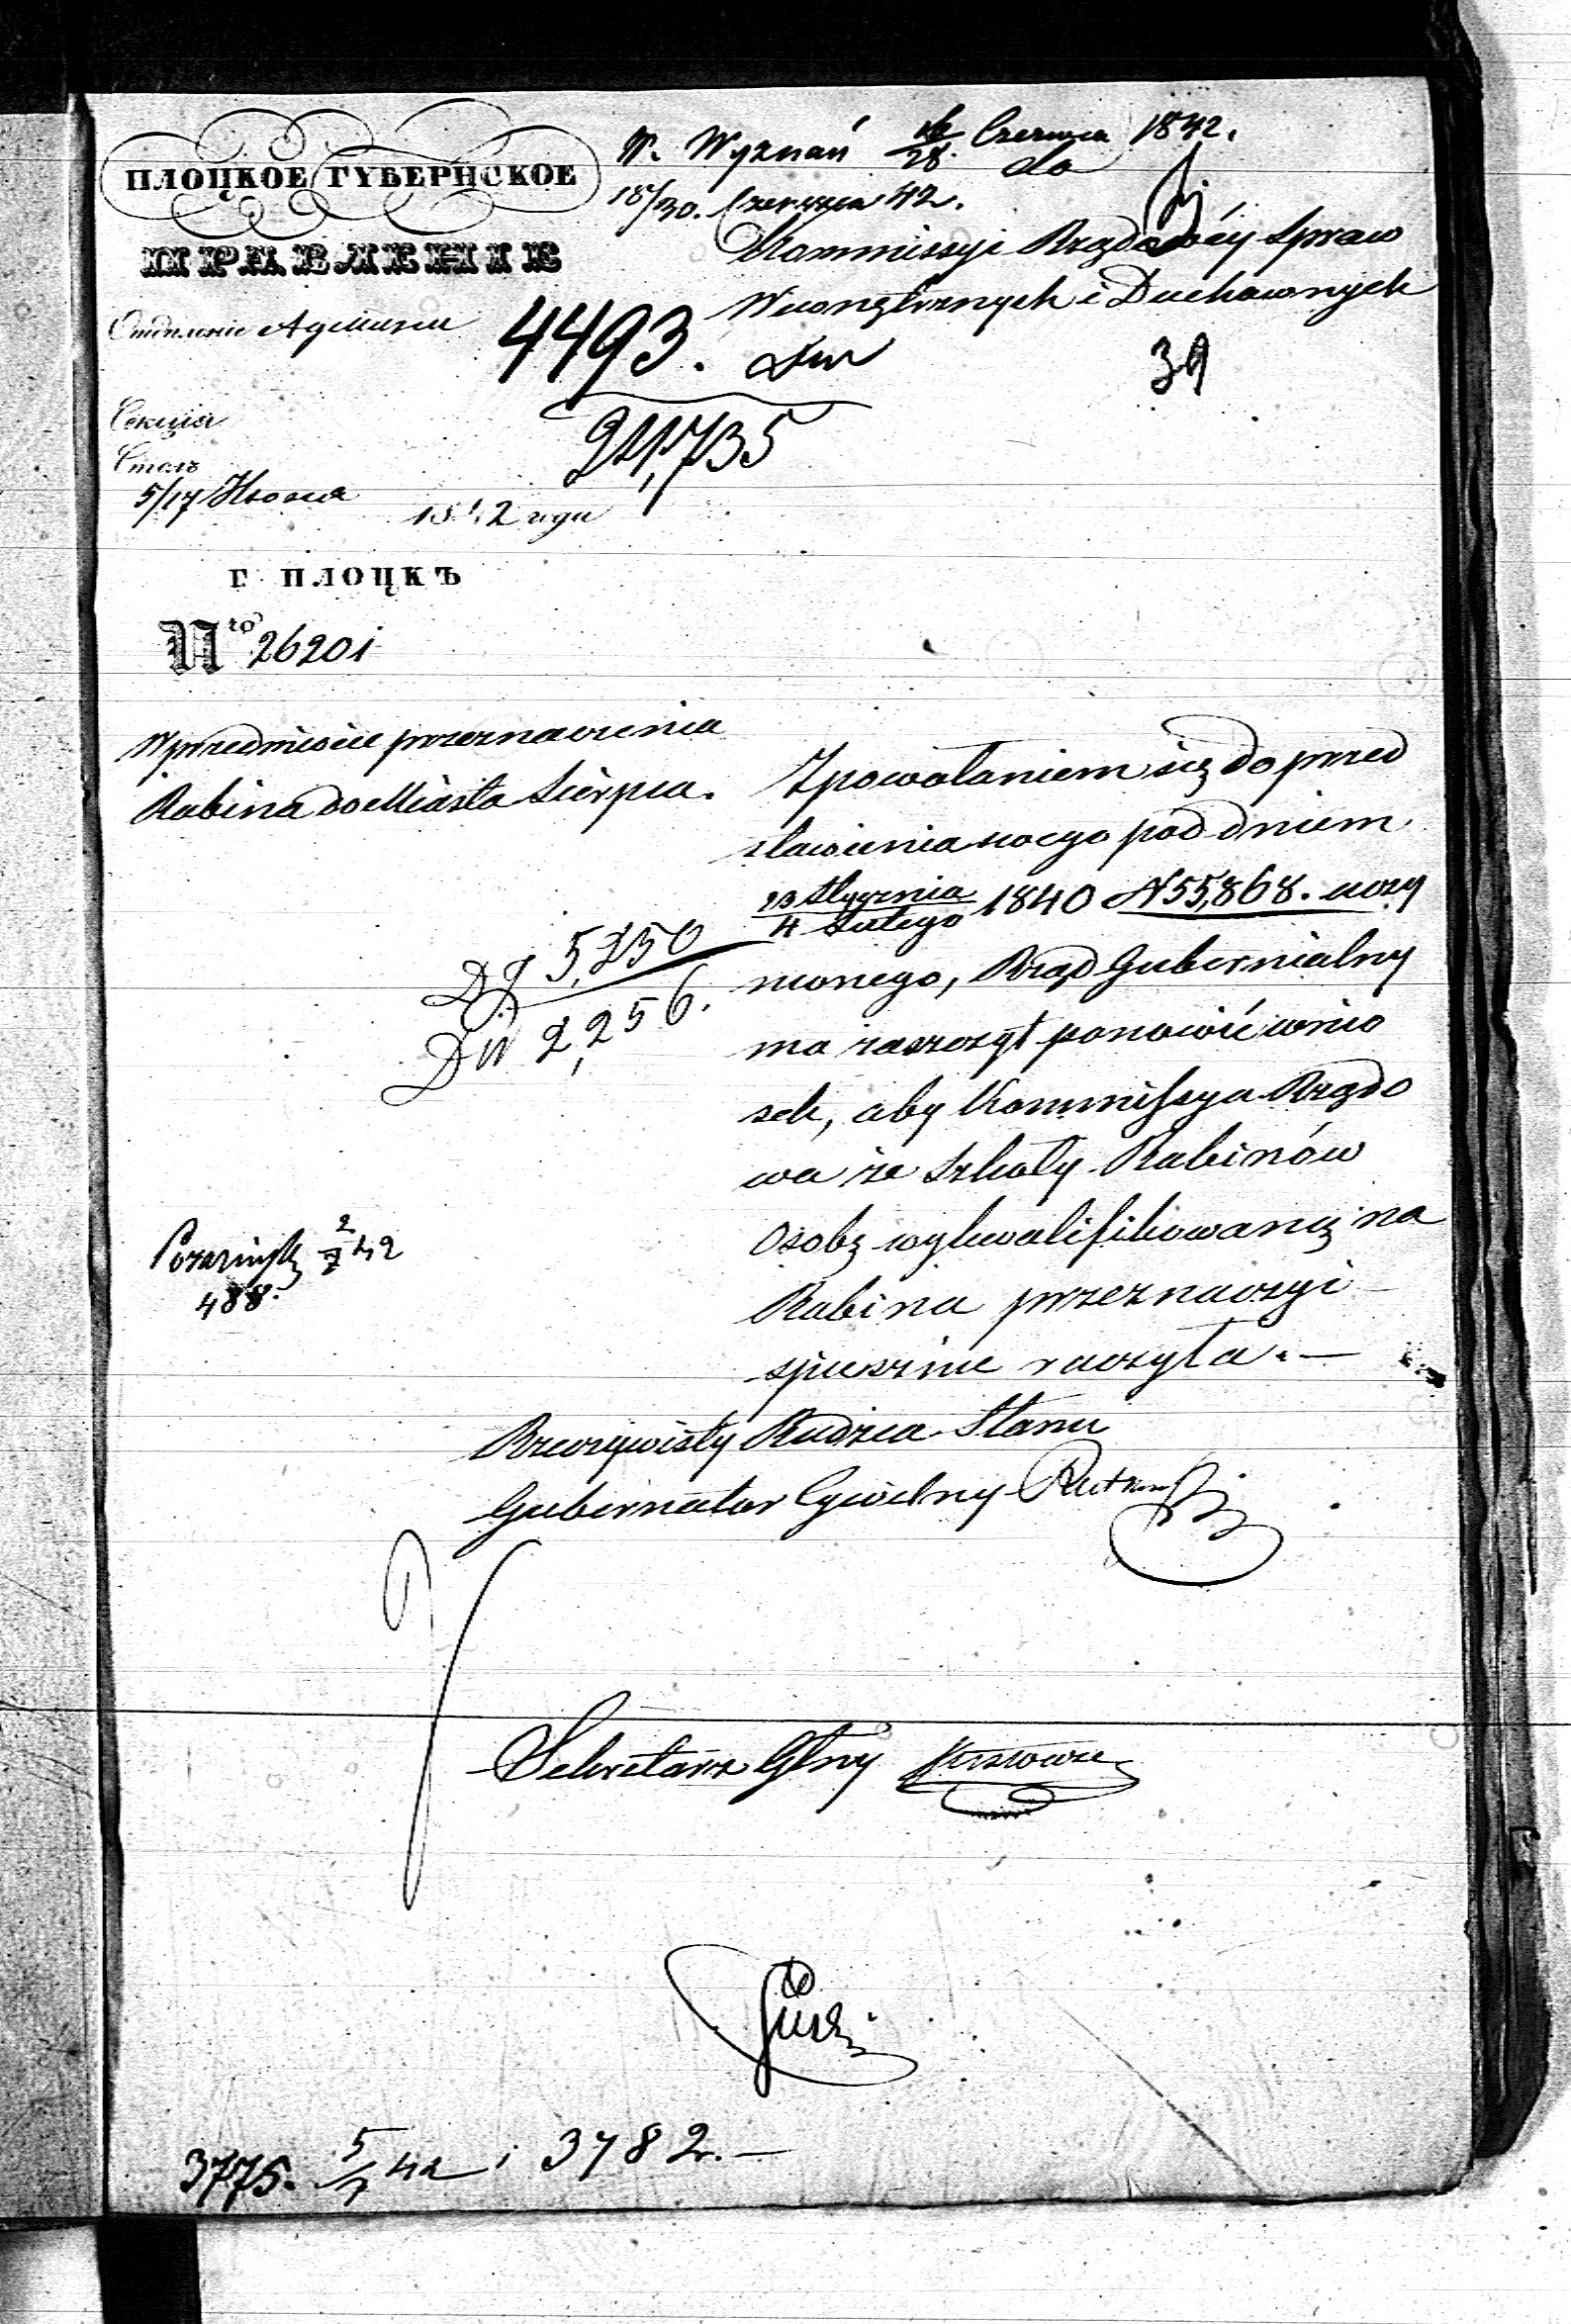 ПЛОЦКОЕ ГУБЕРНСКОЕ
ПРАВЛЕНІЕ
Отдѣленіе
Секція
Столъ
5/17 Июня 1842 года
Г. ПЛОЦКЪ
Nto 26201
W. Wyznań 16/28 Czerwca 1842.
18/30. Czerwca 42.
do
Kommissyi Rządowéy Spraw
Wewnętrznych i Duchownych
4493.
24,735
39
W przedmiocie przeznaczenia
Rabina do Miasta Sierpca.
Z powołaniem się do przed
stawienia swego pod dniem
23 Stycznia / 4 Lutego 1840 N 55,868. uczy
nionego, Rząd Gubernialny
ma zaszczyt ponowić wnio
sek, aby Kommissya Rządo
wa ze Szkoły Rabinów
Osobę wykwalifikowaną na
Rabina przeznaczyć
spiesznie raczyła. —
5,250
DW 2,256.
2/7 42
488.
Rzeczywisty Radzca Stanu
Gubernator Cywilny
Sekretarz Głny
3775. 5/7 42 i 3782. —